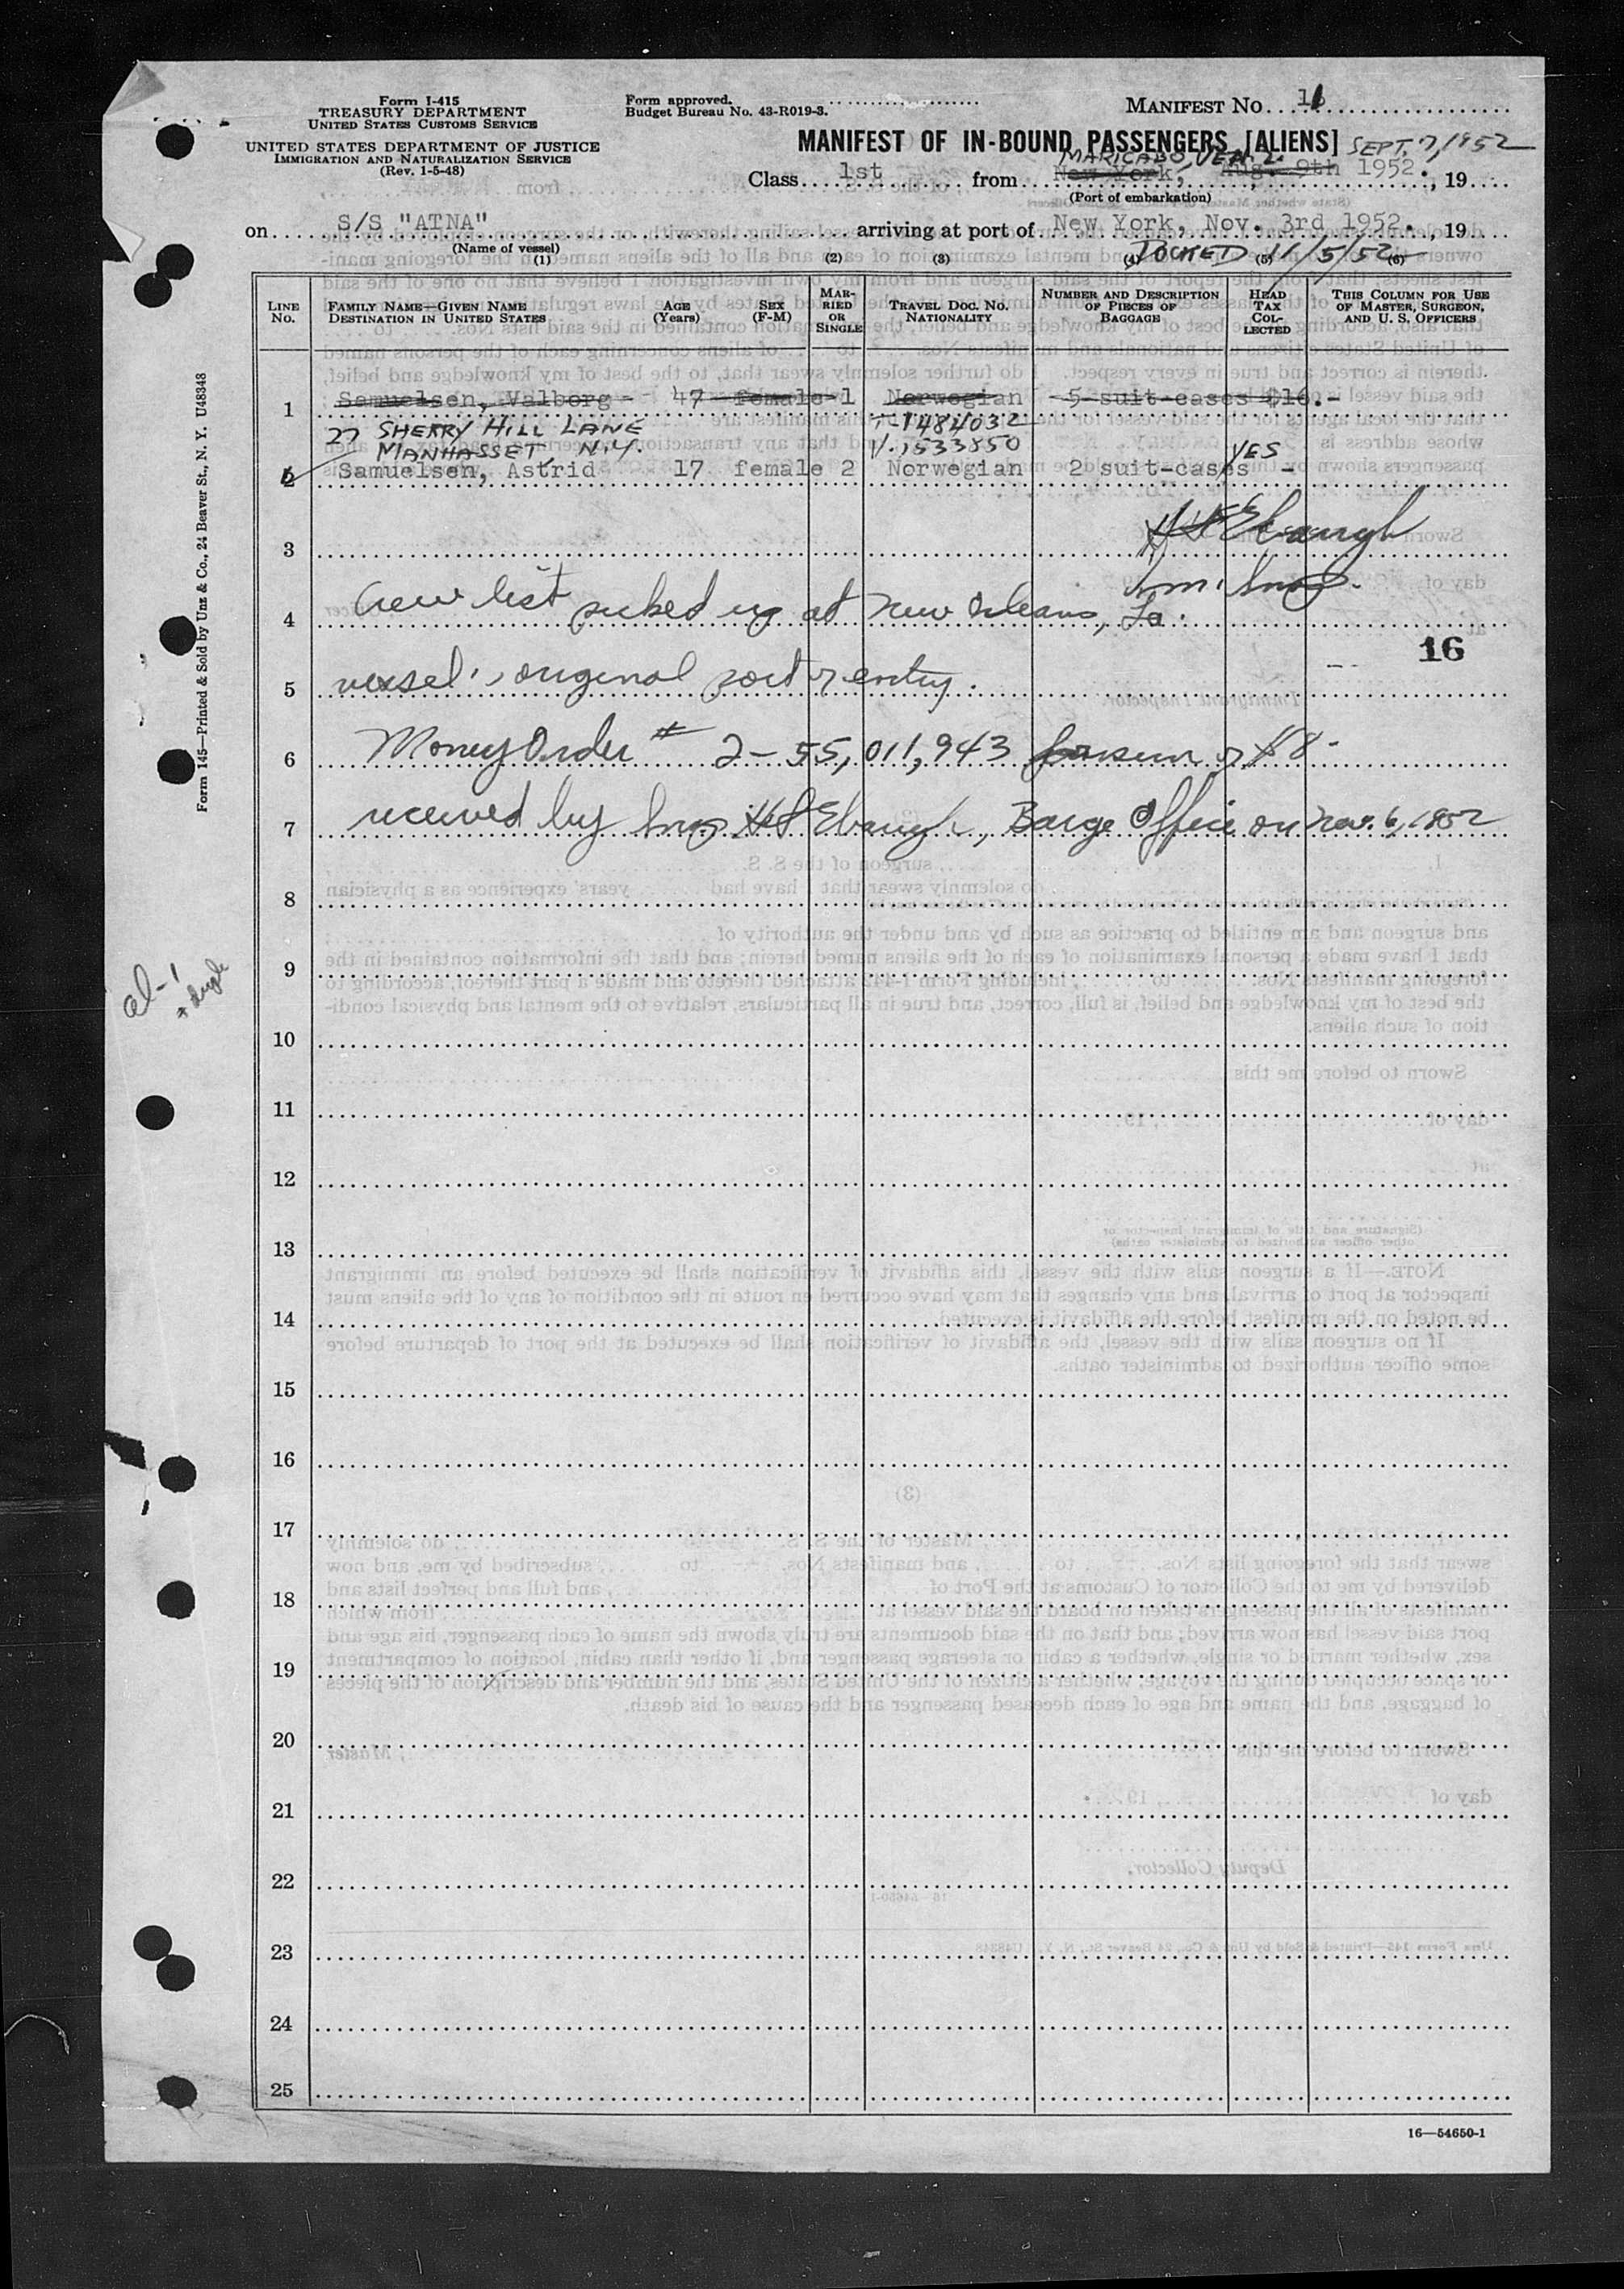 Form I-415
TREASURY DEPARTMENT
UNITED STATES CUSTOMS SERVICE
UNITED STATES DEPARTMENT OF JUSTICE
IMMIGRATION AND NATURALIZATION SERVICE
(Rev. 1-5-48)
Form approved.
Budget Bureau No. 43-R019-3.
MANIFEST NO.
MANIFEST OF IN-BOUND PASSENGERS [ALIENS] SEPT. 7, 1952
MARICABO, VEN.
Class 1st from New York, Aug. 9th 1952. , 19
(Port of embarkation)
on S/S "ATNA" arriving at port of New York, Nov. 3rd 1952. , 19
(Name of vessel)
DOCKED 11/5/52
(1) (2) (3) (4) (5) (6)
LINE No. FAMILY NAME—GIVEN NAME DESTINATION IN UNITED STATES AGE (Years) SEX (F-M) MARRIED OR SINGLE TRAVEL DOC. NO. NATIONALITY NUMBER AND DESCRIPTION OF PIECES OF BAGGAGE HEAD TAX COLLECTED THIS COLUMN FOR USE OF MASTER, SURGEON, AND U. S. OFFICERS
1 Samuelsen, Valborg - 47 female 1 Norwegian 5 suit-cases $16.-
27 SHERRY HILL LANE T-1484032
MANHASSET, N.Y. V-1533850 YES
2 Samuelsen, Astrid 17 female 2 Norwegian 2 suit-cases -
H S Ebaugh
3
Imm. Insp.
4 Crew list picked up at New Orleans, La.
16
5 vessel's original port of entry.
6 Money Order # 2-55,011,943 for sum of $8-
7 received by Insp. H S Ebaugh, Barge Office on Nov. 6, 1952
8
9
10
11
12
13
14
15
16
17
18
19
20
21
22
23
24
25
16—54650-1
Form 145—Printed & Sold by Unz & Co., 24 Beaver St., N. Y. U48348